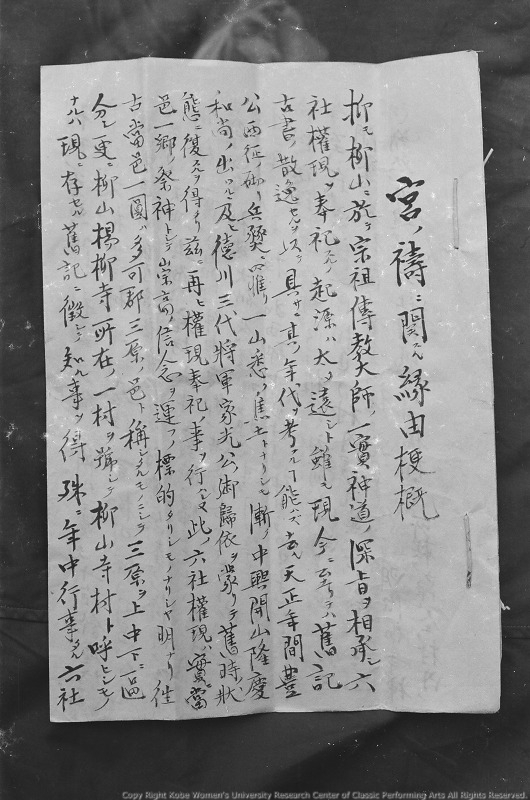 宮ノ禱ニ関スル縁由梗概
抑モ柳山ニ於テ宗祖傳教大師ノ一實神道ノ深旨ヲ相承シ六
社權現ヲ奉祀スルノ起源ハ太タ遠シト雖モ現今ニ至テハ舊記
古書ノ散逸セルヲ以テ具サニ其ノ年代ヲ考フルニ能ハズ去ル天正年間豊
公西征ノ砌ニ兵燹ニ罹リ一山悉ク焦土トナリシモ漸ク中興開山隆慶
和尚ノ出ツルニ及ヒ徳川三代将軍家光公ノ御歸依ヲ蒙リテ舊時ノ狀
態ニ復スルヲ得タリ茲ニ再ヒ權現奉祀ノ事ヲ行ヘリ此ノ六社權現ハ實ニ當
邑一郷ノ祭神トシテ崇高ノ信念ヲ運フノ標的タリシモノナリシヤ明ナリ往
古當邑一圓ハ多可郡三原ノ邑ト稱シタルモノニシテ三原ヲ上中下ニ區
分シ更ニ柳山楊柳寺所在ノ一村ヲ號シテ柳山寺村ト呼ヒシモノ
ナルハ現ニ存セル舊記ニ徴シテ知ル事ヲ得 殊ニ年中行事タル六社
Copy Right Kobe Women's University Research Center of Classic Performing Arts All Rights Reserved.